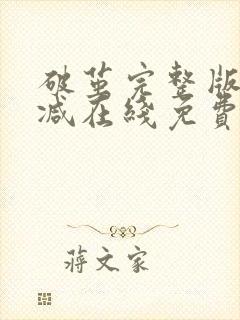 破茧完整版
减在线免費
蒋文家